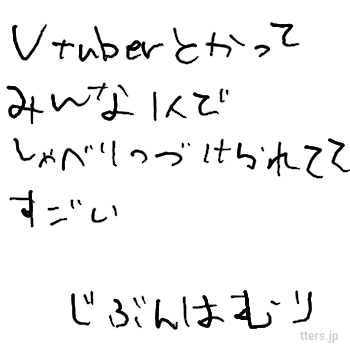 Vtuberとかって
みんな1人で
しゃべりつづけられてて
すごい
じぶんはむり
tters.jp